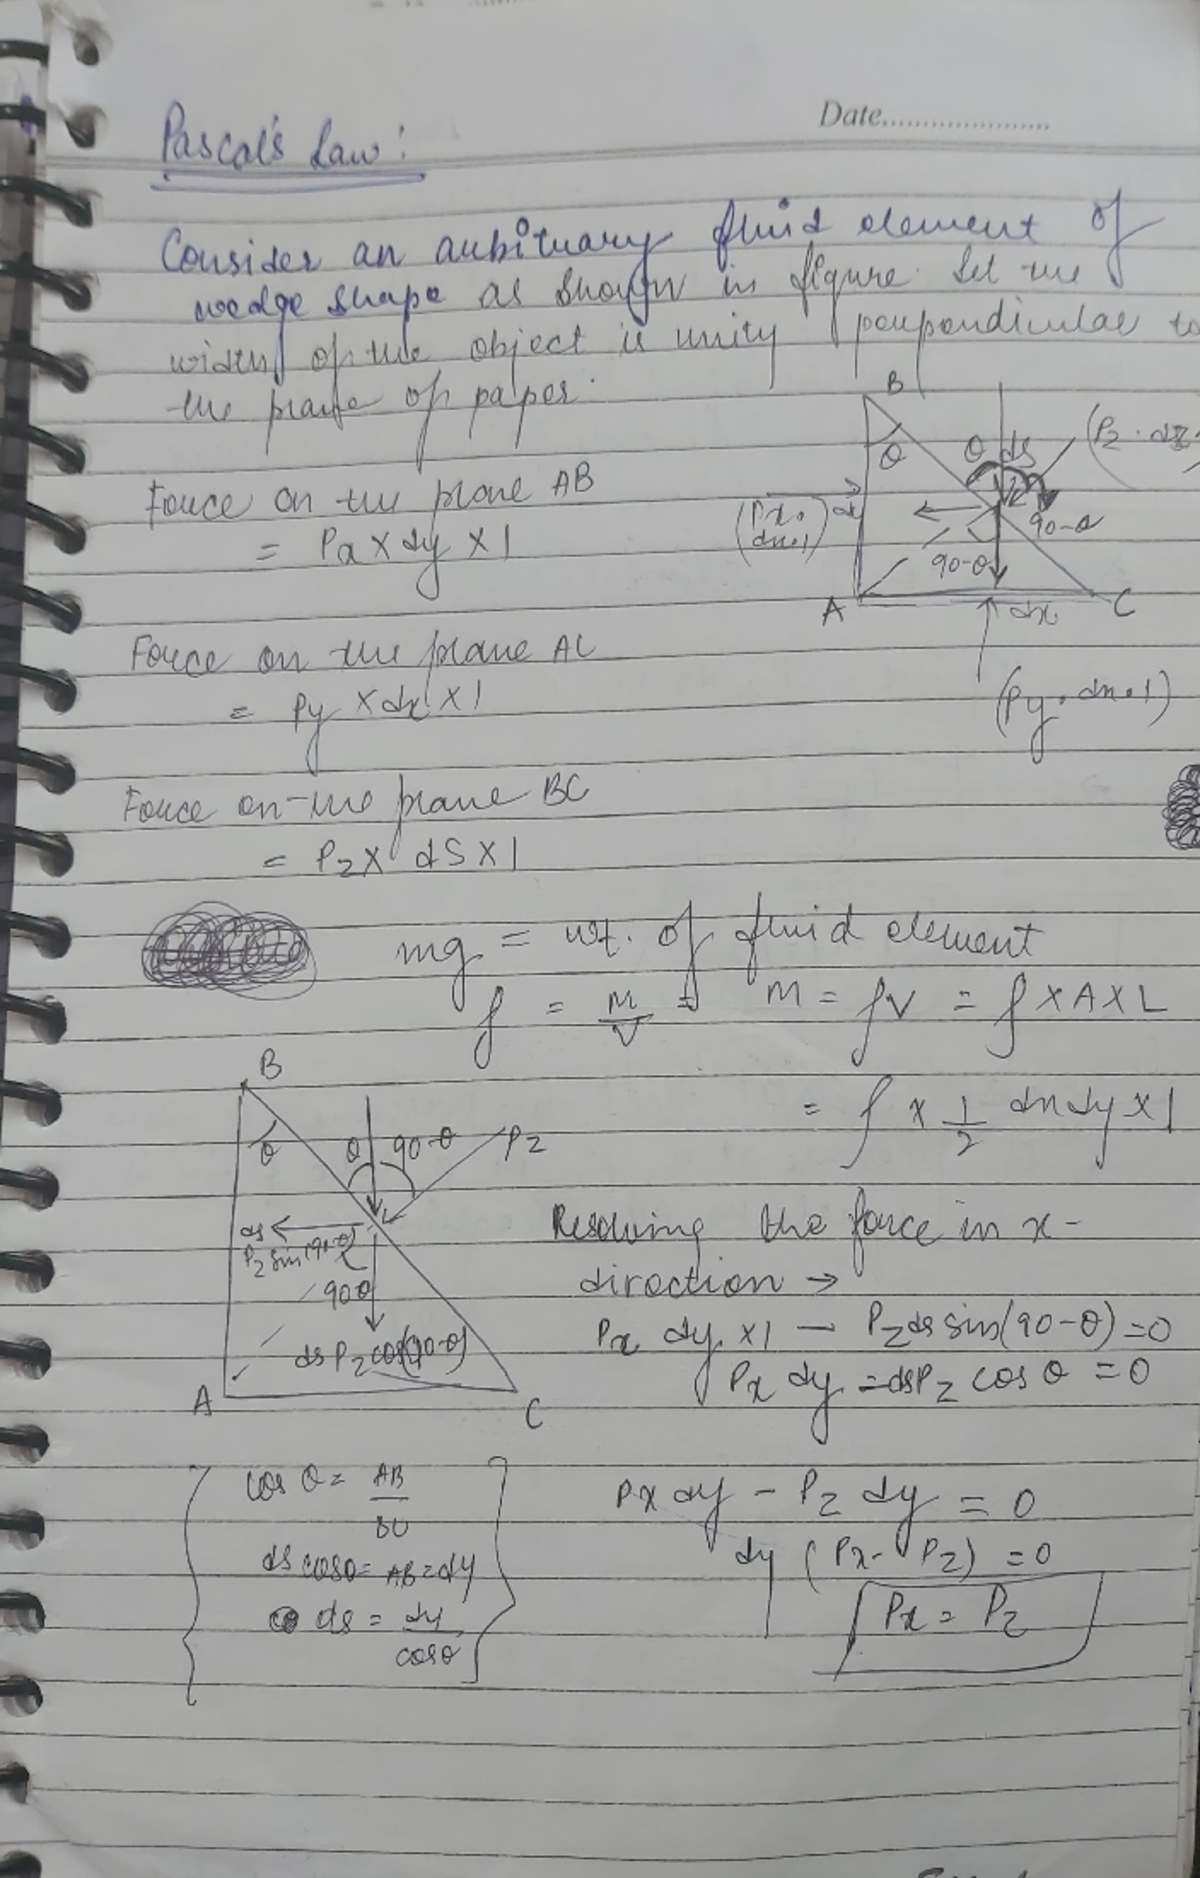 Date.....................
Pascal's Law:
Consider an arbitrary fluid element of
wedge shape as shown in figure. Let the
width of the object is unity perpendicular to
the plane of paper.
B
θ
θ ds
(P2 · dz ·
(Px ·
dn·1)
90-θ
90-θ
A
dx
C
(Py · dn·1)
Force on the plane AB
= Px X dy X 1
Force on the plane AC
= Py X dx X 1
Force on the plane BC
= Pz X dS X 1
mg = wt. of fluid element
ρ = M/V = M = ρV = ρ X A X L
= ρ x 1/2 dn dy x 1
B
θ
θ 90-θ Pz
ds
Pz sin(90-θ)
90θ
ds Pz cos(90-θ)
A
C
Resolving the force in x-
direction →
Px dy x1 — Pz ds sin(90-θ)=0
Px dy = ds Pz cos θ = 0
cos θ = AB/BC
ds cosθ = AB = dy
ds = dy/cosθ
Px dy - Pz dy = 0
dy (Px - Pz) = 0
Px = Pz